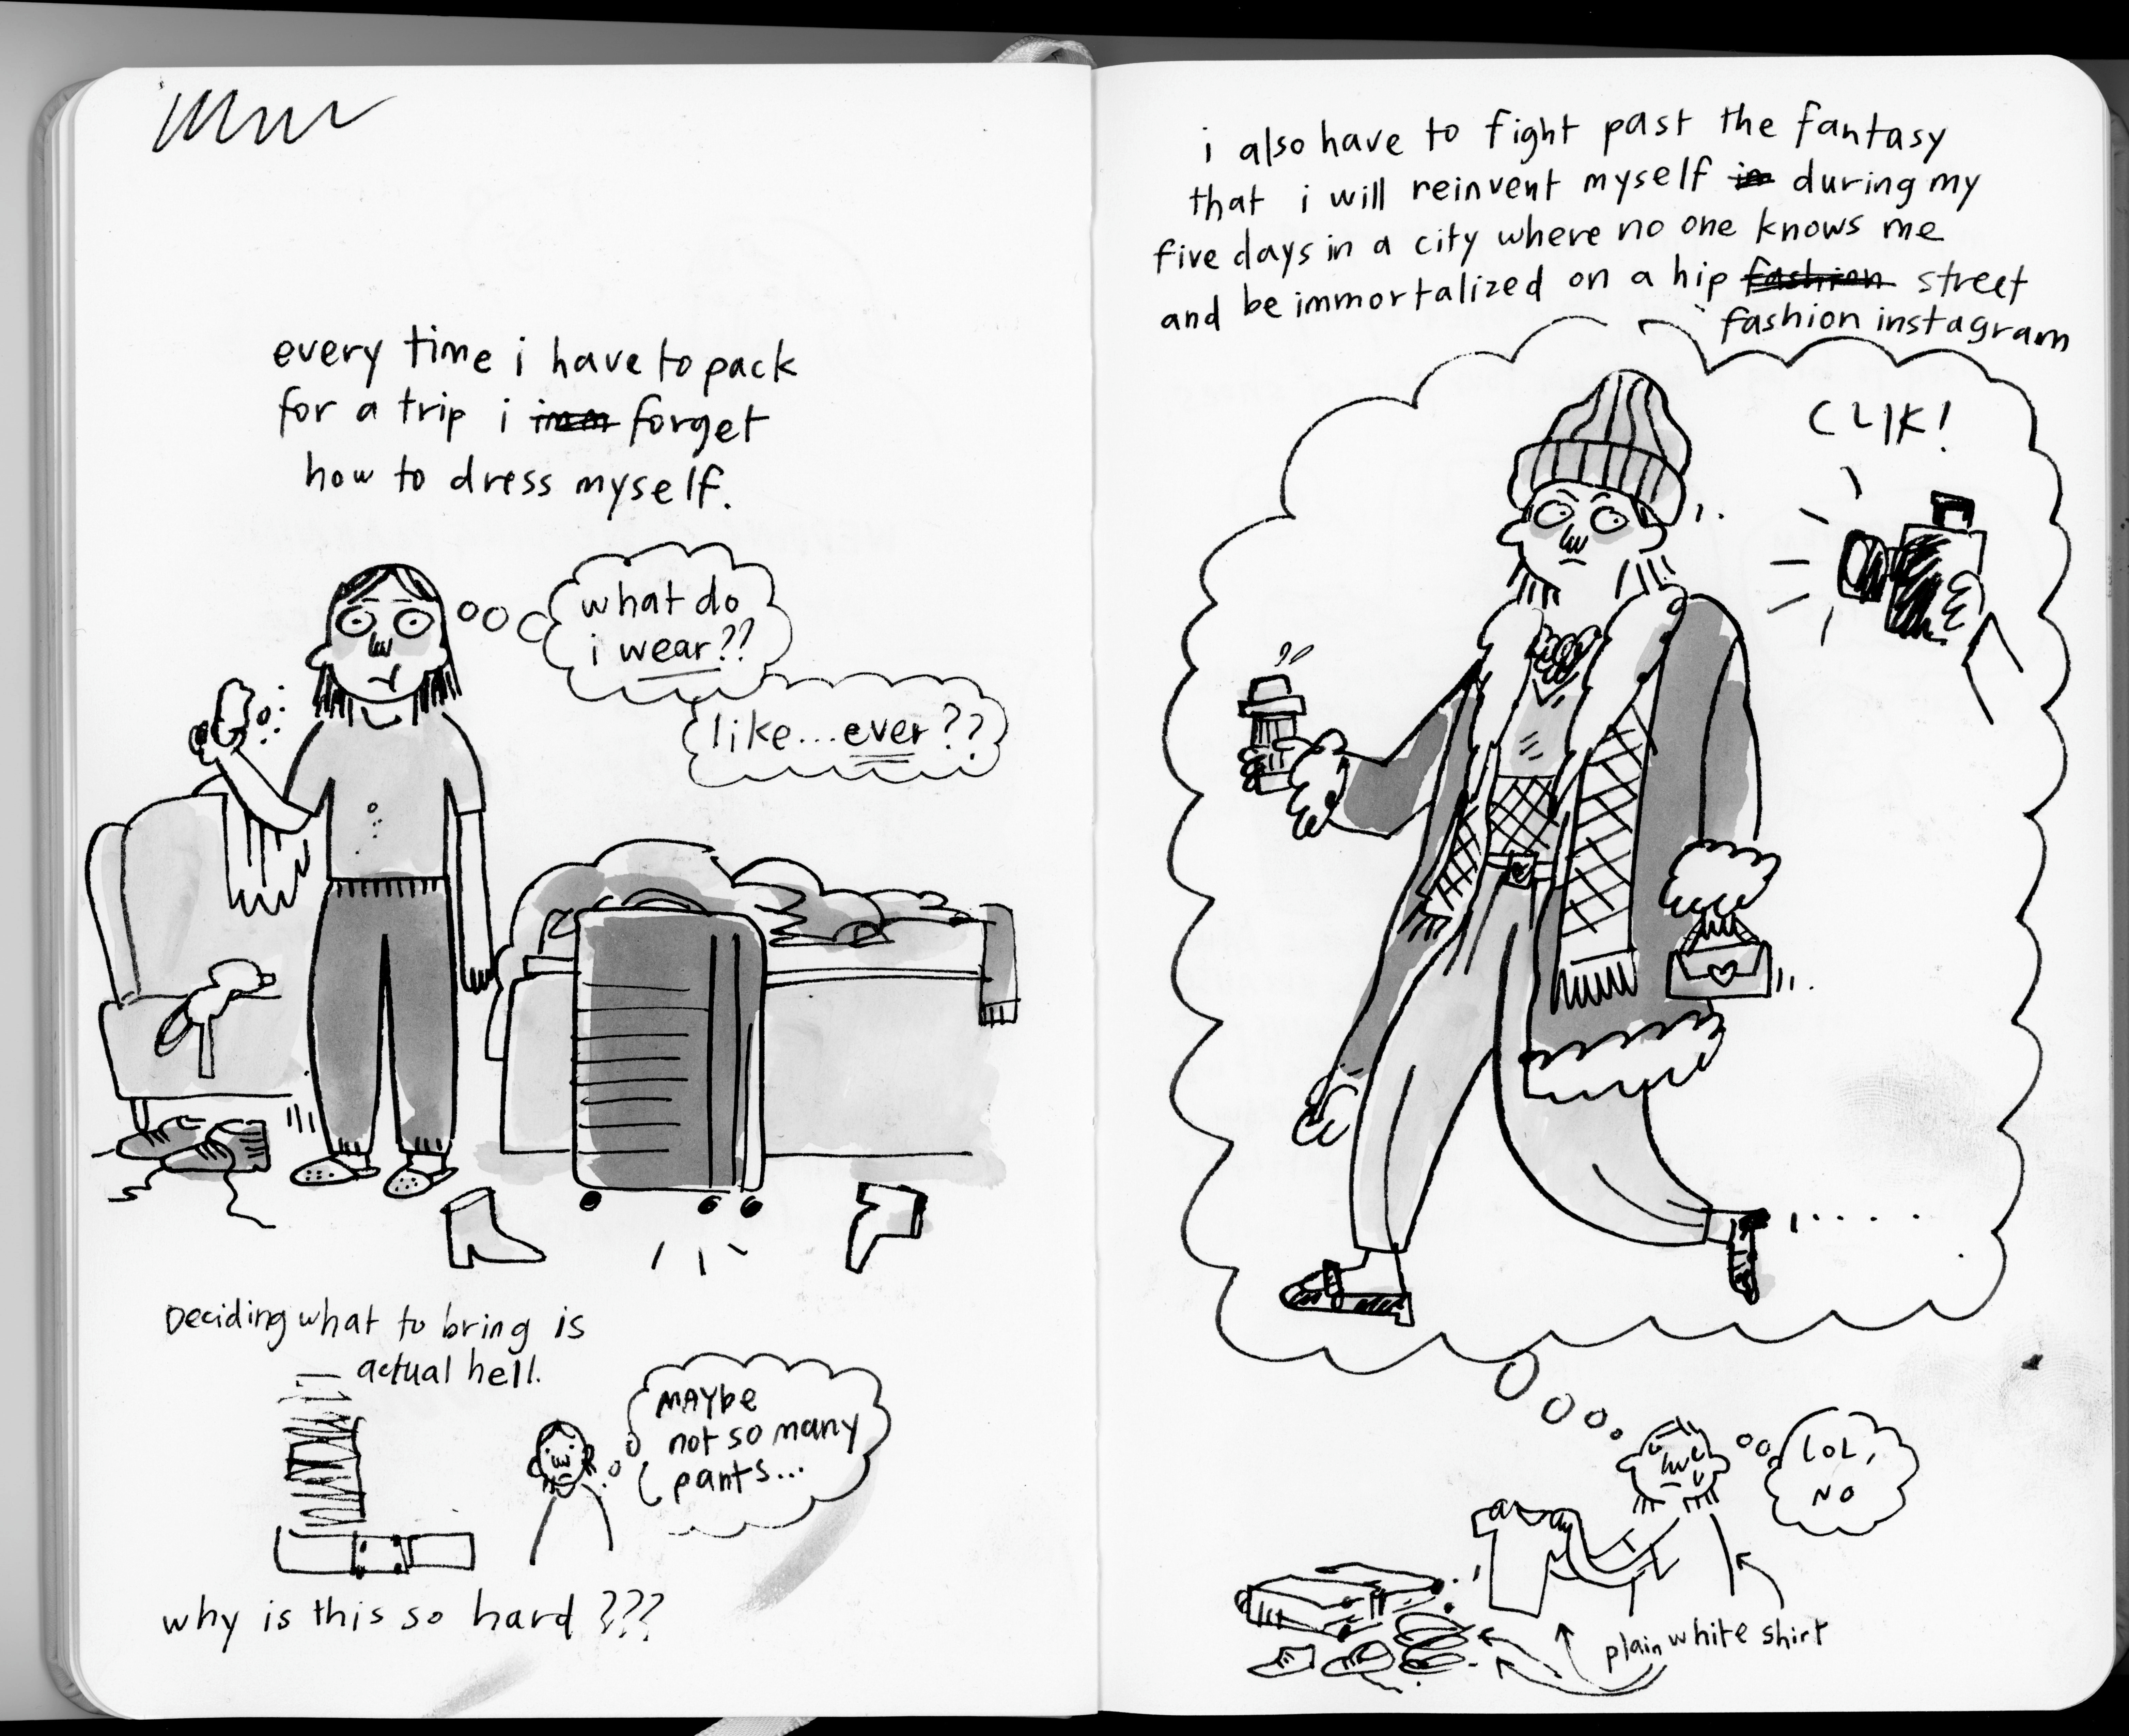 every time i have to pack
for a trip i forget
how to dress myself.
what do
i wear??
like...ever??
Deciding what to bring is
actual hell.
MAYbe
not so many
pants...
why is this so hard ???
i also have to fight past the fantasy
that i will reinvent myself in during my
five days in a city where no one knows me
and be immortalized on a hip fashion street
fashion instagram
CLIK!
LOL,
NO
plain white shirt